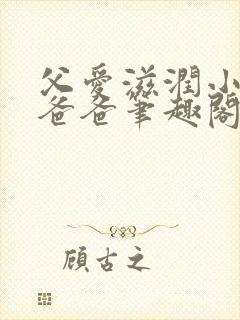 父愛滋潤小
爸爸筆趣閣
顧古之